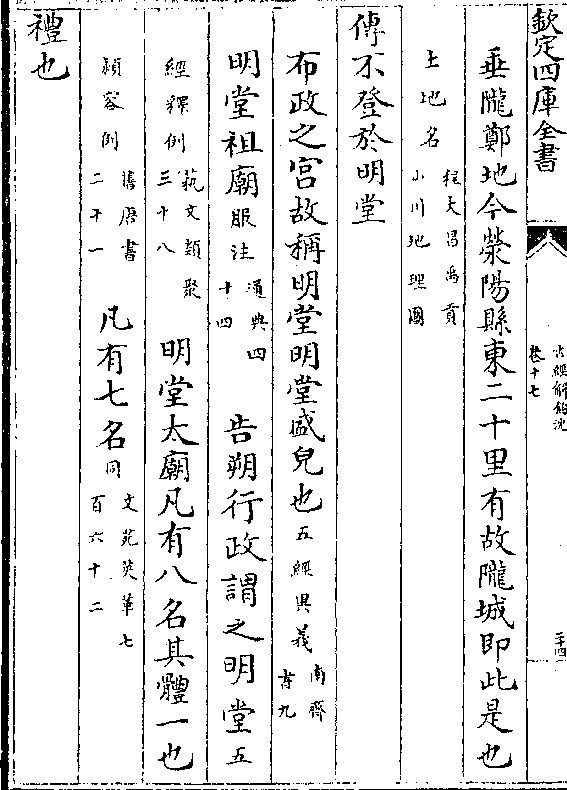 欽定四庫全書
古經解鉤沈
卷十七
二十四
垂隴鄭地今滎陽縣東二十里有故隴城即此是也
土地名
程大昌禹貢
山川地理圖
傳不登於明堂
布政之宮故稱明堂明堂盛皃也五經異義
南齊
書九
明堂祖廟服注
通典四
十四
告朔行政謂之明堂五
經釋例
藝文類聚
三十八
明堂太廟凡有八名其體一也
潁容例
舊唐書
二十一
凡有七名同
文苑英華七
百六十二
禮也